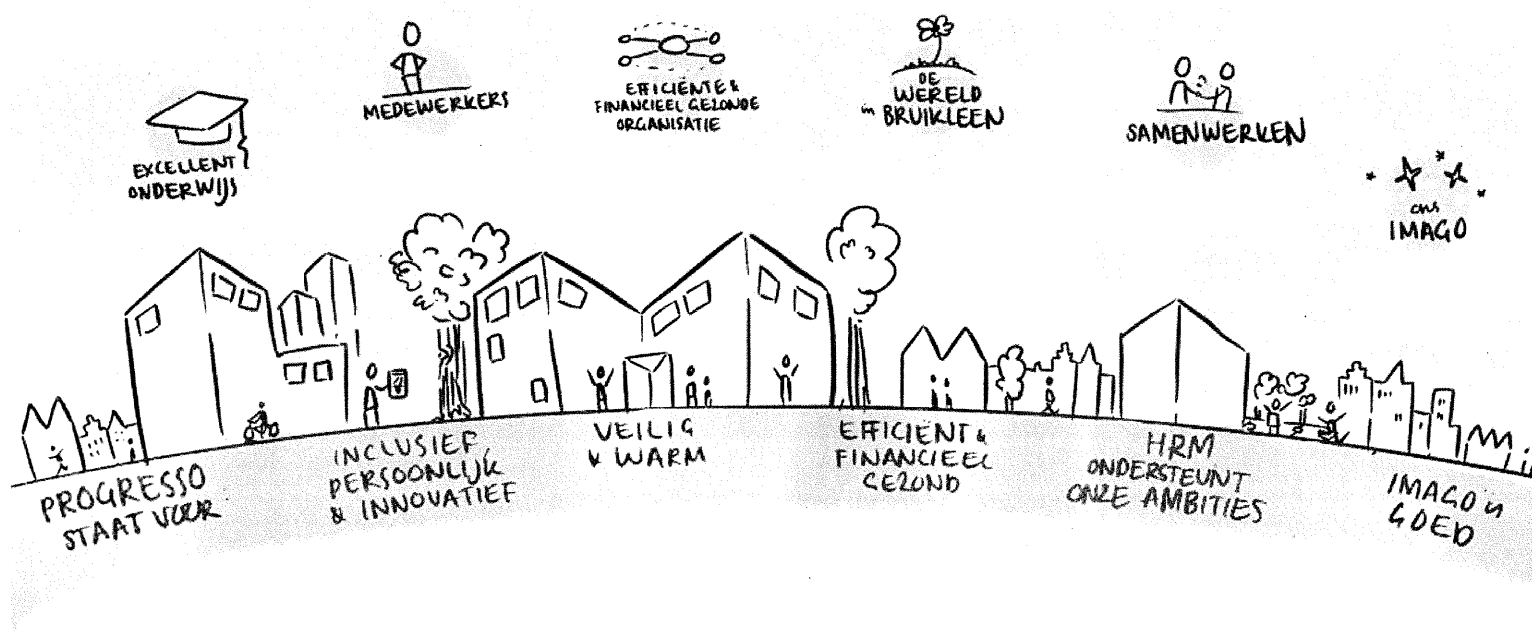 EXCELLENT
ONDERWIJS
MEDEWERKERS
EFFICIËNTE &
FINANCIEEL GEZONDE
ORGANISATIE
DE
WERELD
in BRUIKLEEN
SAMENWERKEN
ons
IMAGO
PROGRESSO
STAAT VOOR
INCLUSIEF
PERSOONLIJK
& INNOVATIEF
VEILIG
& WARM
EFFICIËNT &
FINANCIEEL
GEZOND
HRM
ONDERSTEUNT
ONZE AMBITIES
IMAGO is
GOED